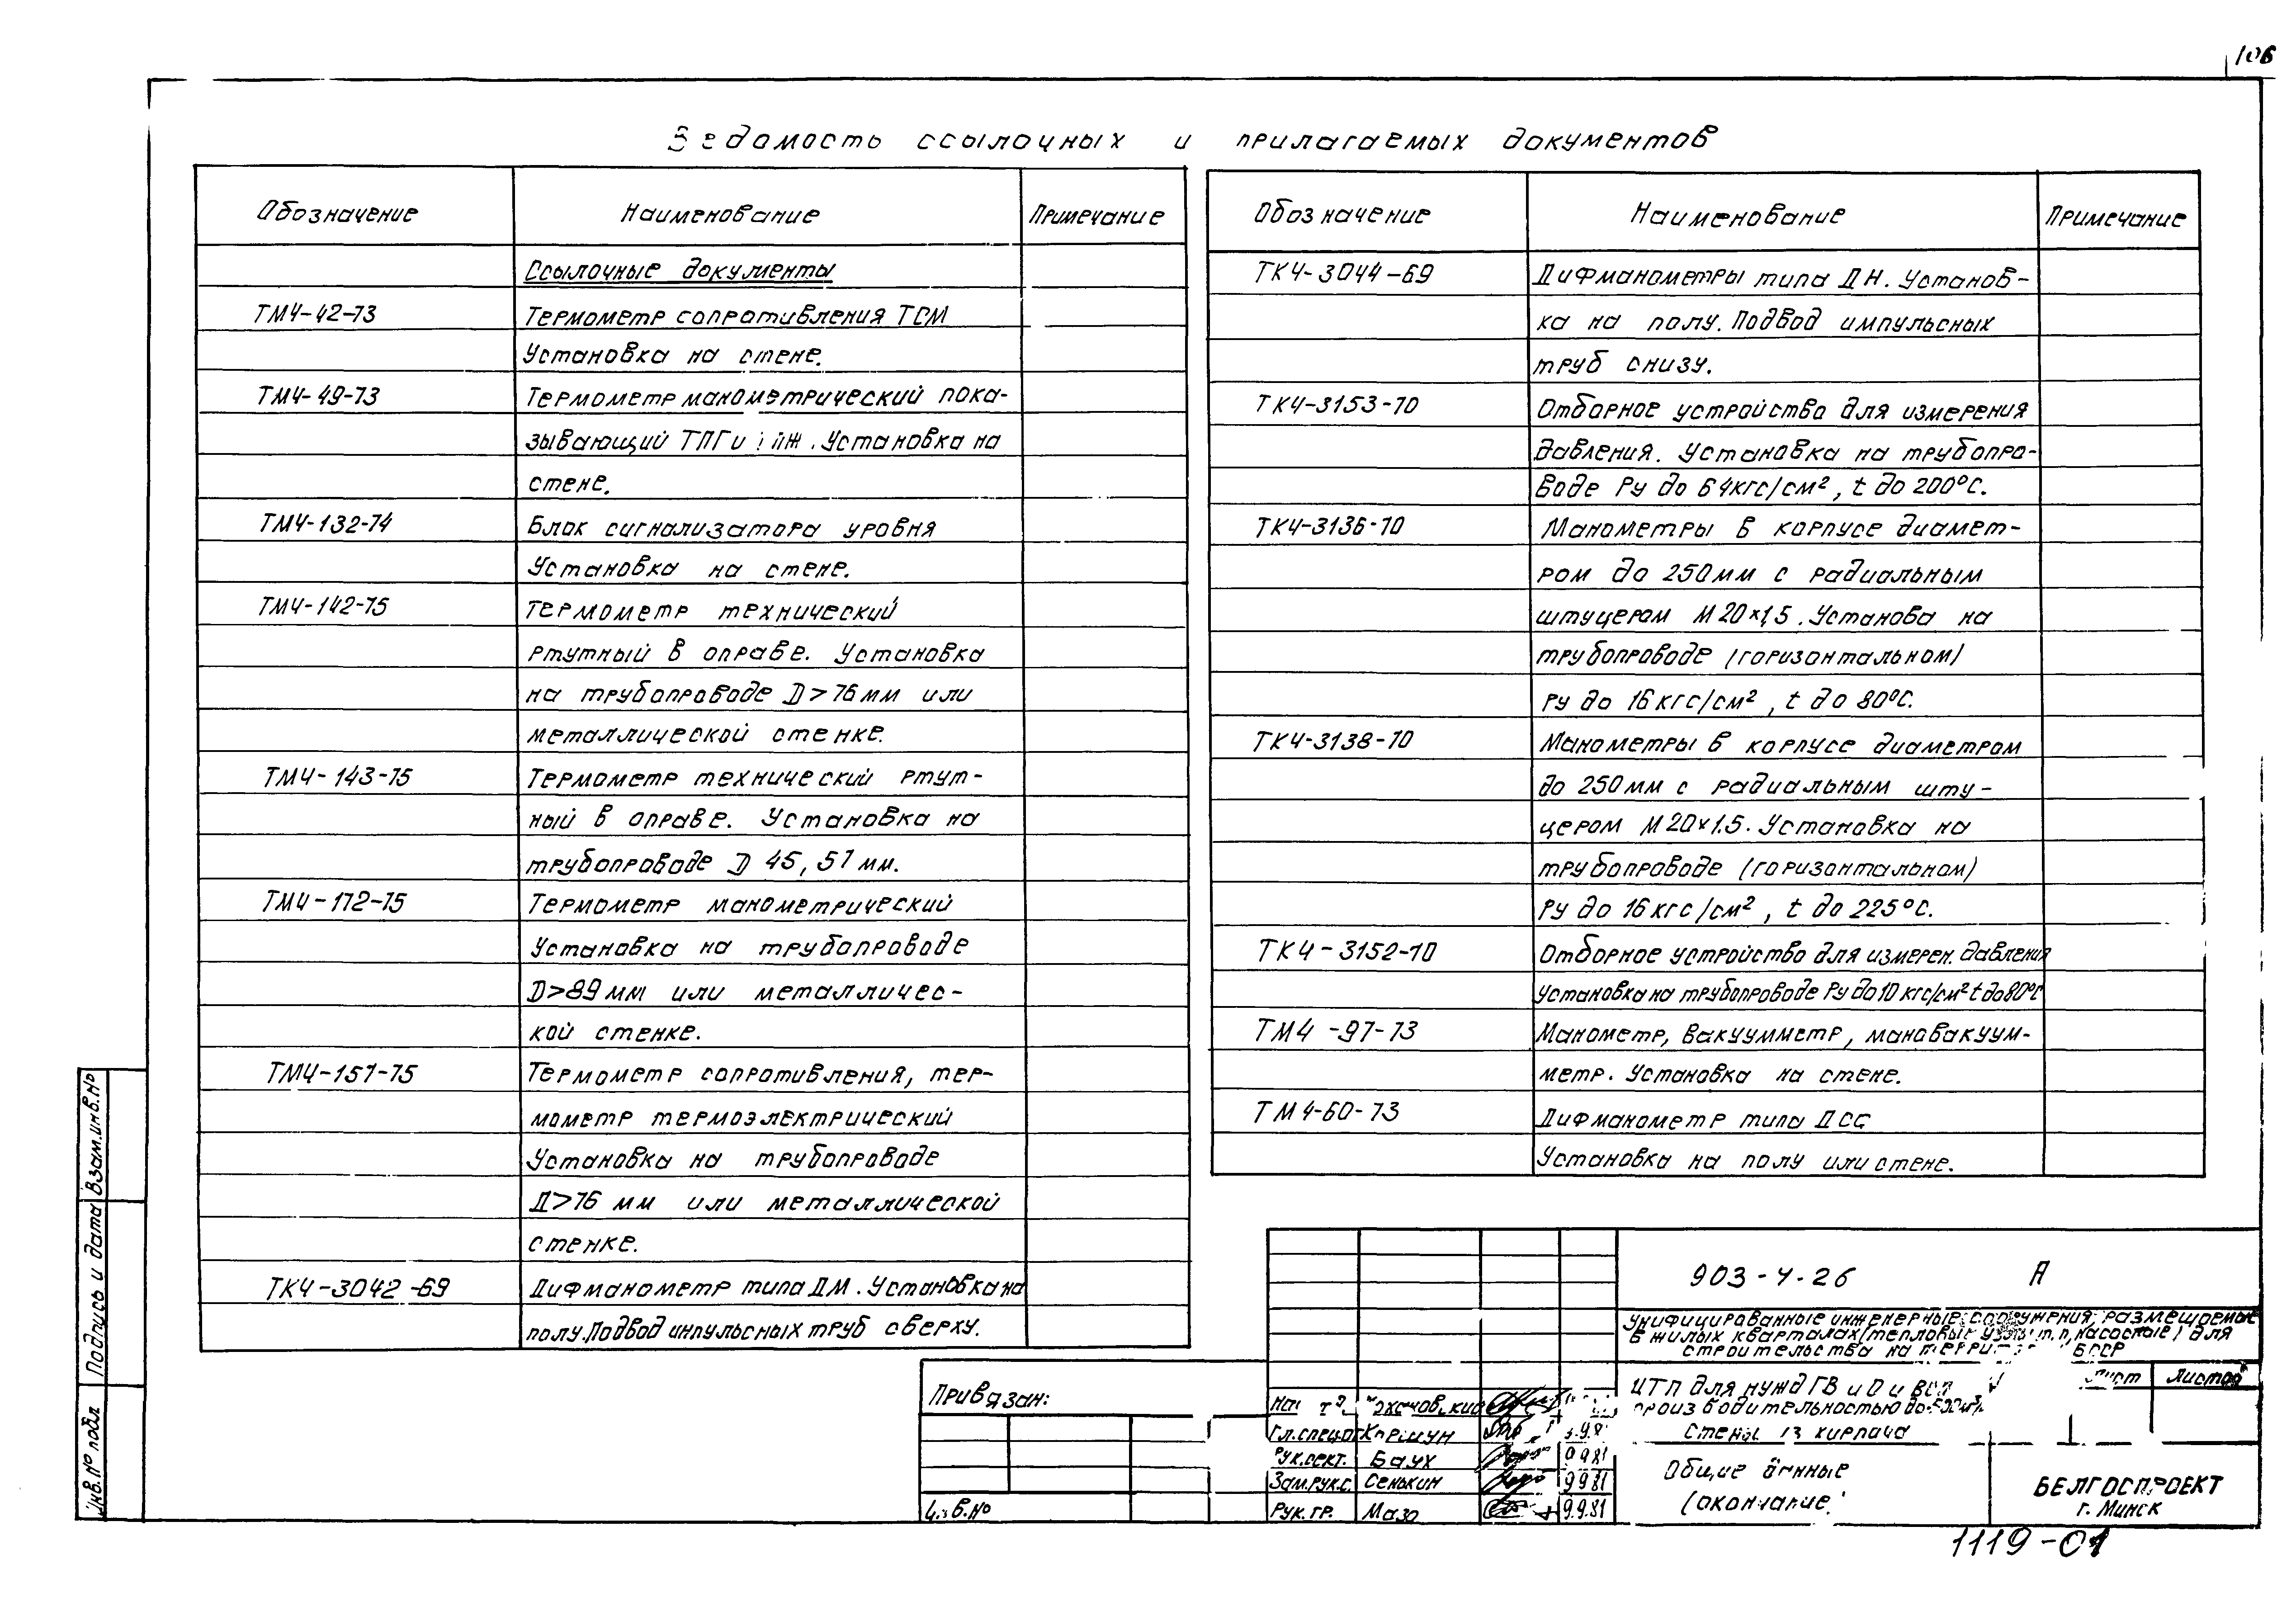 106
Ведомость ссылочных и прилагаемых документов
Обозначение Наименование Примечание
Ссылочные документы
ТМ4-42-73 Термометр сопротивления ТСМ
Установка на стене.
ТМ4-49-73 Термометр манометрический пока-
зывающий ТПГ и ПЖ. Установка на
стене.
ТМ4-132-74 Блок сигнализатора уровня
Установка на стене.
ТМ4-142-75 Термометр технический
ртутный в оправе. Установка
на трубопроводе D>76мм или
металлической стенке.
ТМ4-143-75 Термометр технический ртут-
ный в оправе. Установка на
трубопроводе D 45, 57 мм.
ТМ4-172-75 Термометр манометрический
Установка на трубопроводе
D>89мм или металличес-
кой стенке.
ТМ4-157-75 Термометр сопротивления, тер-
мометр термоэлектрический
Установка на трубопроводе
Д>76 мм или металлической
стенке.
ТК4-3042-69 Дифманометр типа ДМ. Установка на
полу. Подвод импульсных труб сверху.
Обозначение Наименование Примечание
ТК4-3044-69 Дифманометры типа ДН. Установ-
ка на полу. Подвод импульсных
труб снизу.
ТК4-3153-70 Отборное устройство для измерения
давления. Установка на трубопро-
воде Ру до 64кгс/см², t до 200°С.
ТК4-3136-70 Манометры в корпусе диамет-
ром до 250мм с радиальным
штуцером М20×1,5. Установа на
трубопроводе (горизонтальном)
Ру до 16кгс/см², t до 80°С.
ТК4-3138-70 Манометры в корпусе диаметром
до 250мм с радиальным шту-
цером М20×1.5. Установка на
трубопроводе (горизонтальном)
Ру до 16кгс/см², t до 225°С.
ТК4-3152-70 Отборное устройство для измерен. давления
Установка на трубопроводе Ру до 10 кгс/см² t до 80°С
ТМ4-97-73 Манометр, вакуумметр, мановакуум-
метр. Установка на стене.
ТМ4-60-73 Дифманометр типа ДСС
Установка на полу или стене.
Взам.инв.№
Подпись и дата
Инв.№ подл
Привязан:
Инв.№
903-4-26 А
Унифицированные инженерные сооружения, размещаемые
в жилых кварталах (тепловые узлы, т.п, насосные) для
строительства на БССР
ЦТП для нужд ГВ и О и
производительностью до
Стены из кирпича
Лист Листов
Гл.спец. Коршун
Рук.сект. Баух 9.9.81
Зам.рук.с. Сенькин 9.9.81
Рук.гр. Мазо 9.9.81
Общие данные
(окончание)
БЕЛГОСПРОЕКТ
г. Минск
1119-01